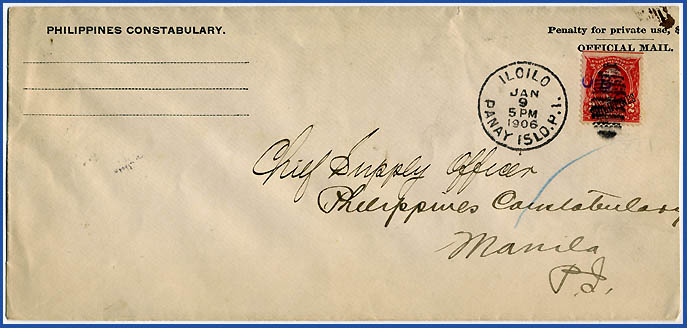 PHILIPPINES CONSTABULARY.
Penalty for private use, $
OFFICIAL MAIL.
ILOILO
JAN
9
5 PM
1906
PANAY ISLD. P.I.
Chief Supply Officer
Philippines Constabulary
Manila
P.I.